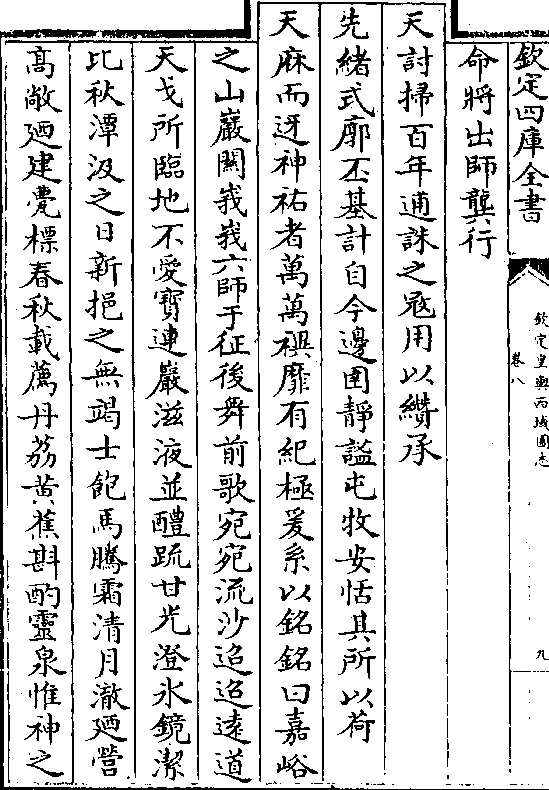 欽定四庫全書
欽定皇輿西域圖志
卷八
九
命將出師龔行
天討掃百年逋誅之冦用以纘承
先緒式廓丕基計自今邊圉靜謐屯牧安恬其所以荷
天庥而迓神祐者萬萬禩靡有紀極爰系以銘銘曰嘉峪
之山巖關峩峩六師于征後舞前歌宛宛流沙迢迢遠道
天戈所臨地不愛寶連巖滋液並醴疏甘光澄氷鏡潔
比秋潭汲之日新挹之無竭士飽馬騰霜清月澈廼營
髙敞廼建甍標春秋載薦丹荔黄蕉斟酌靈泉惟神之